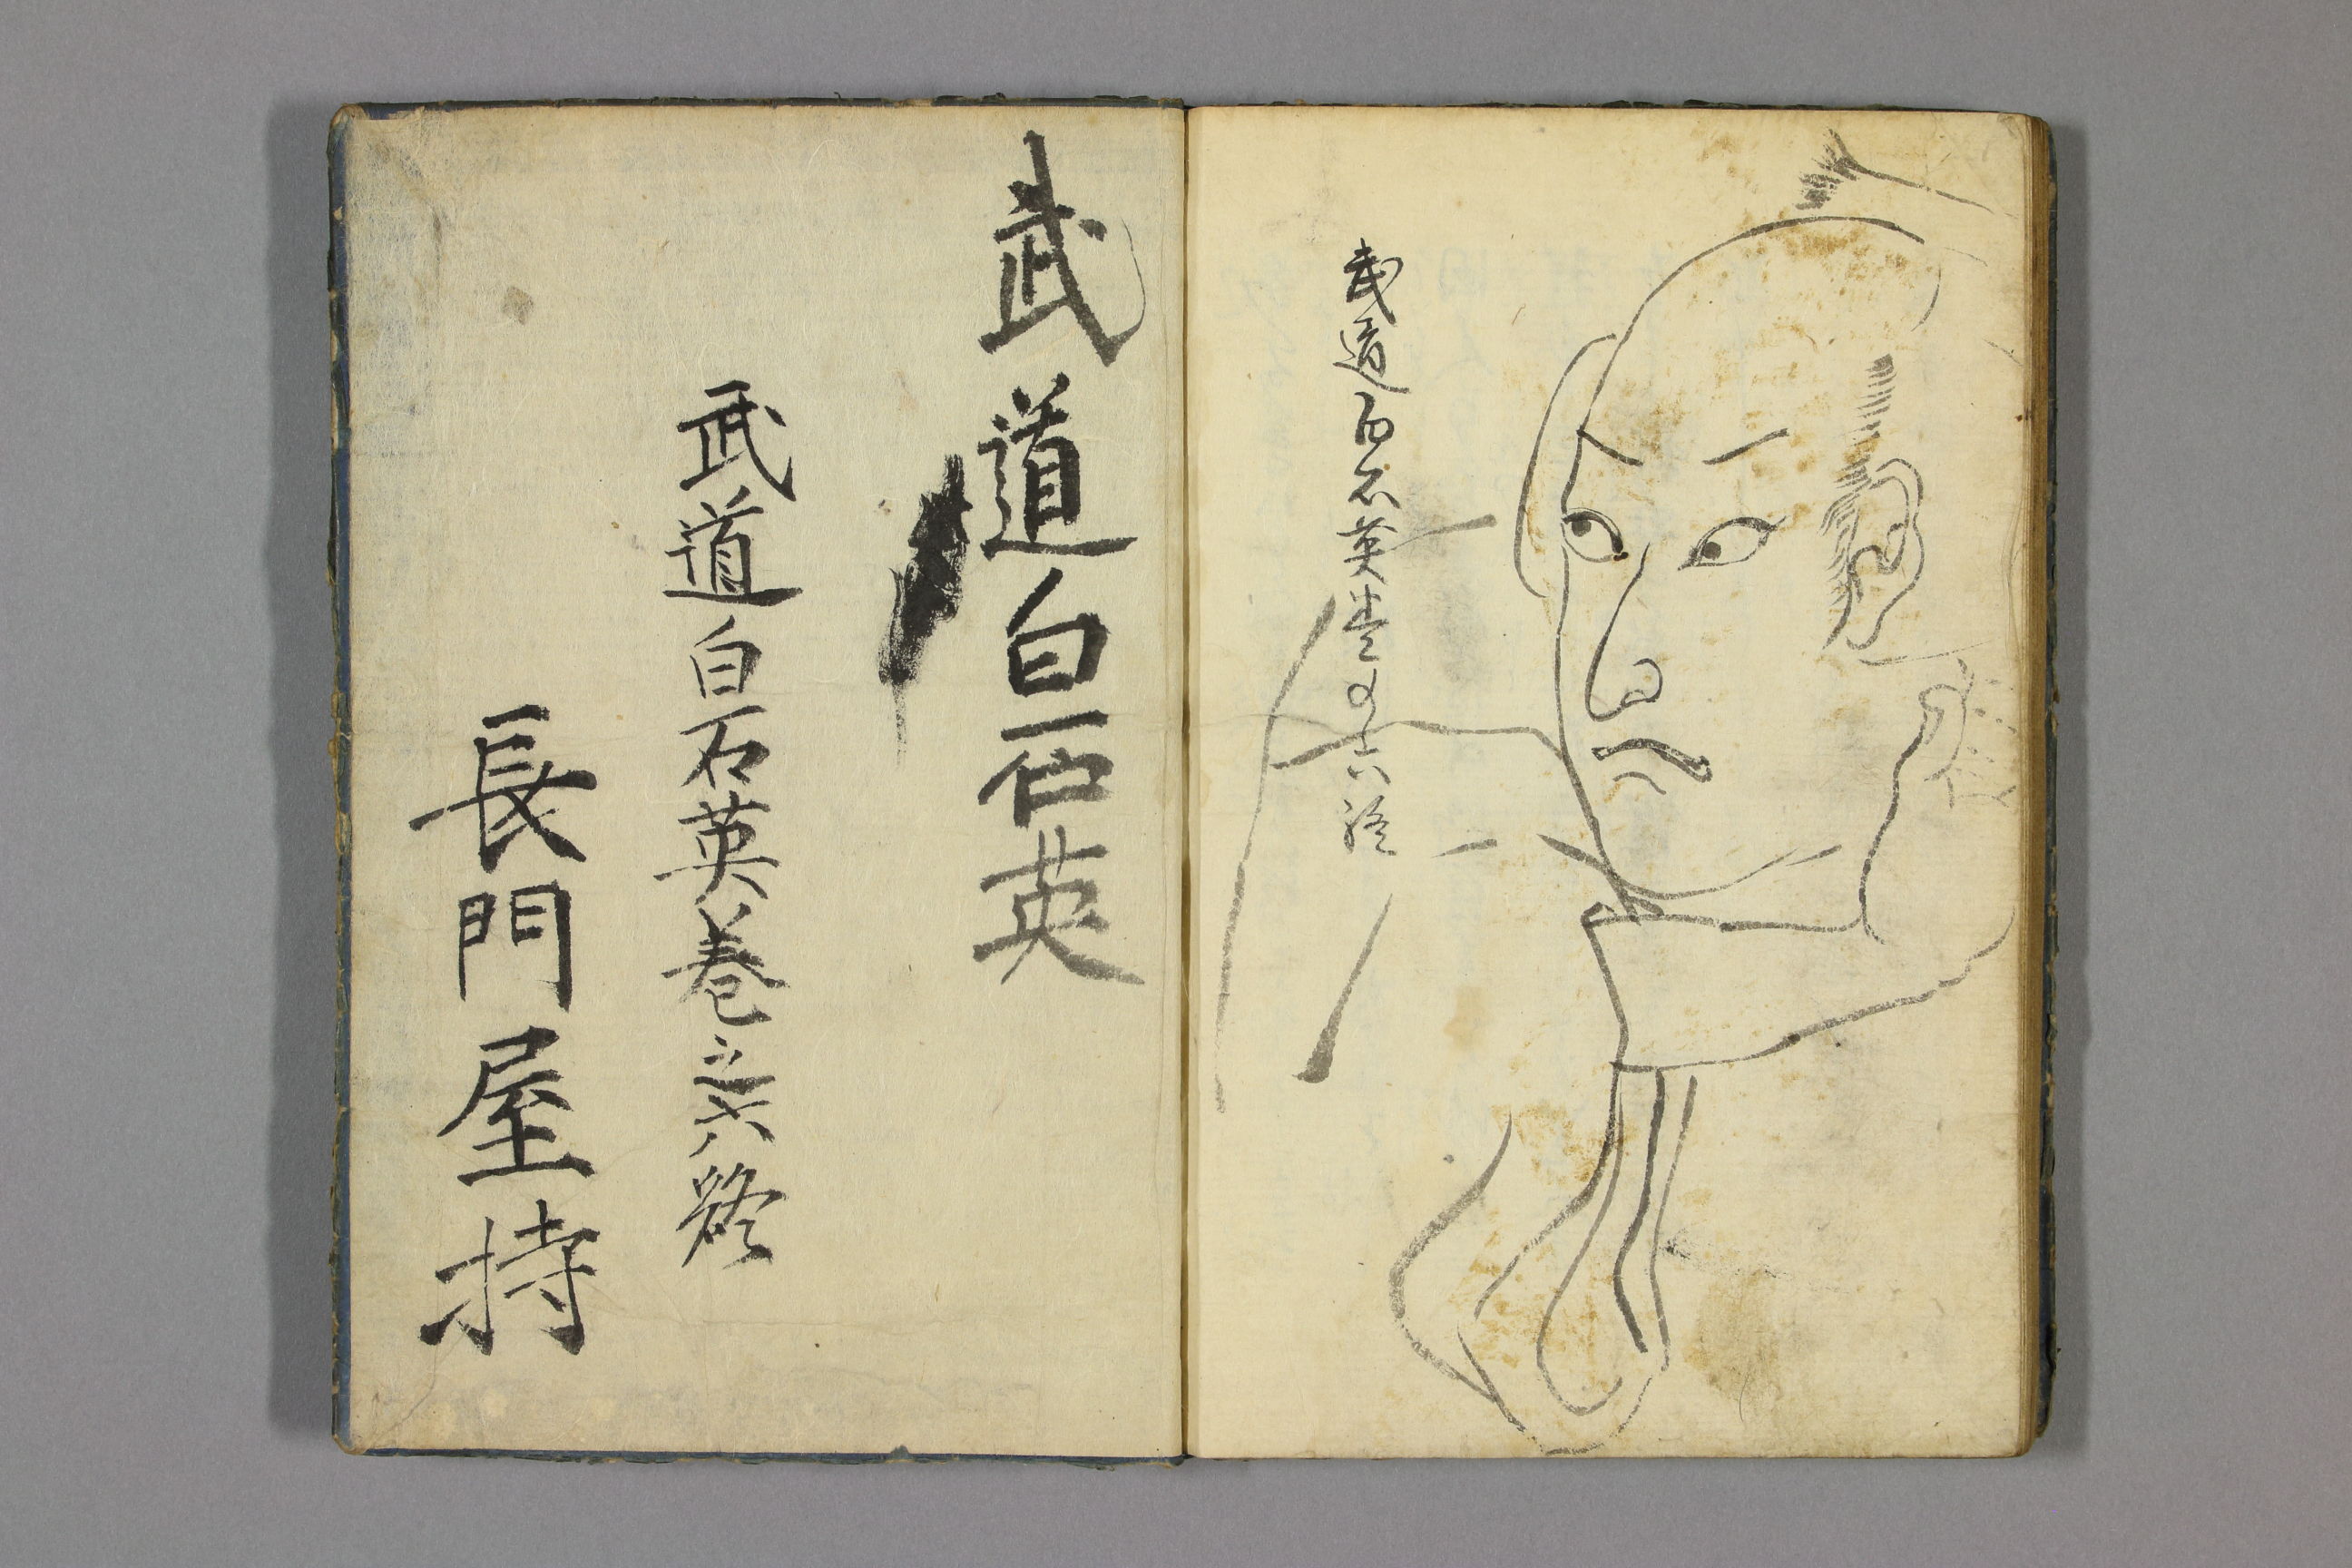 武道白石英巻之六終
武道白石英
武道白石英巻之六終
長門屋持